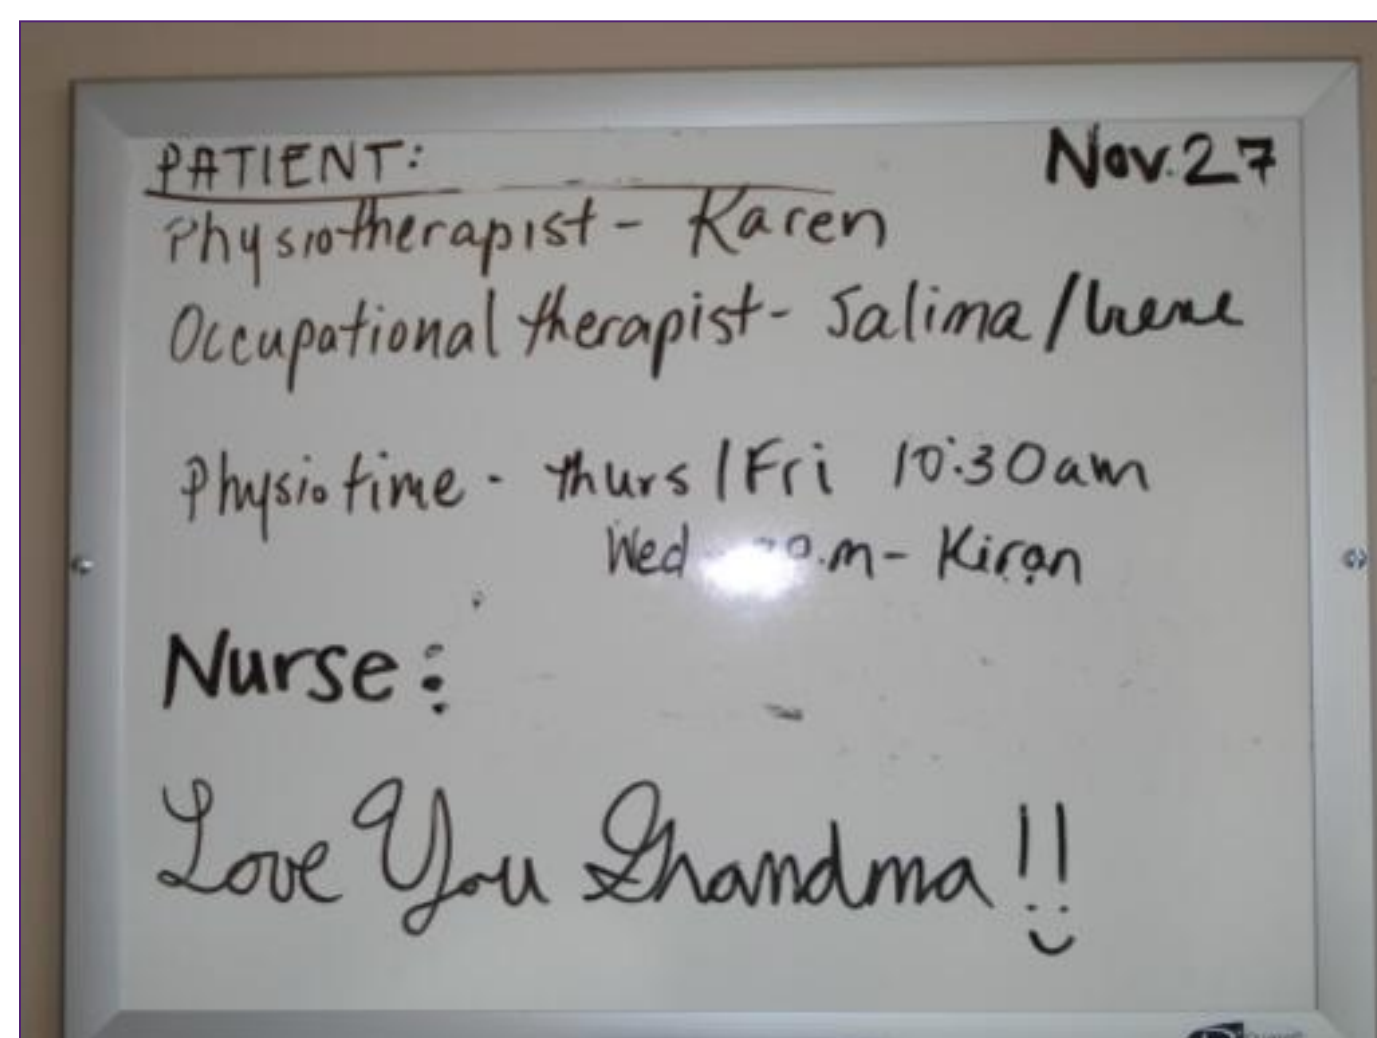 PATIENT:
Nov. 27
Physiotherapist - Karen
Occupational therapist - Salima / Irene
Physio time - thurs / Fri 10:30am
Wed m - Kiran
Nurse:
Love You Grandma!!